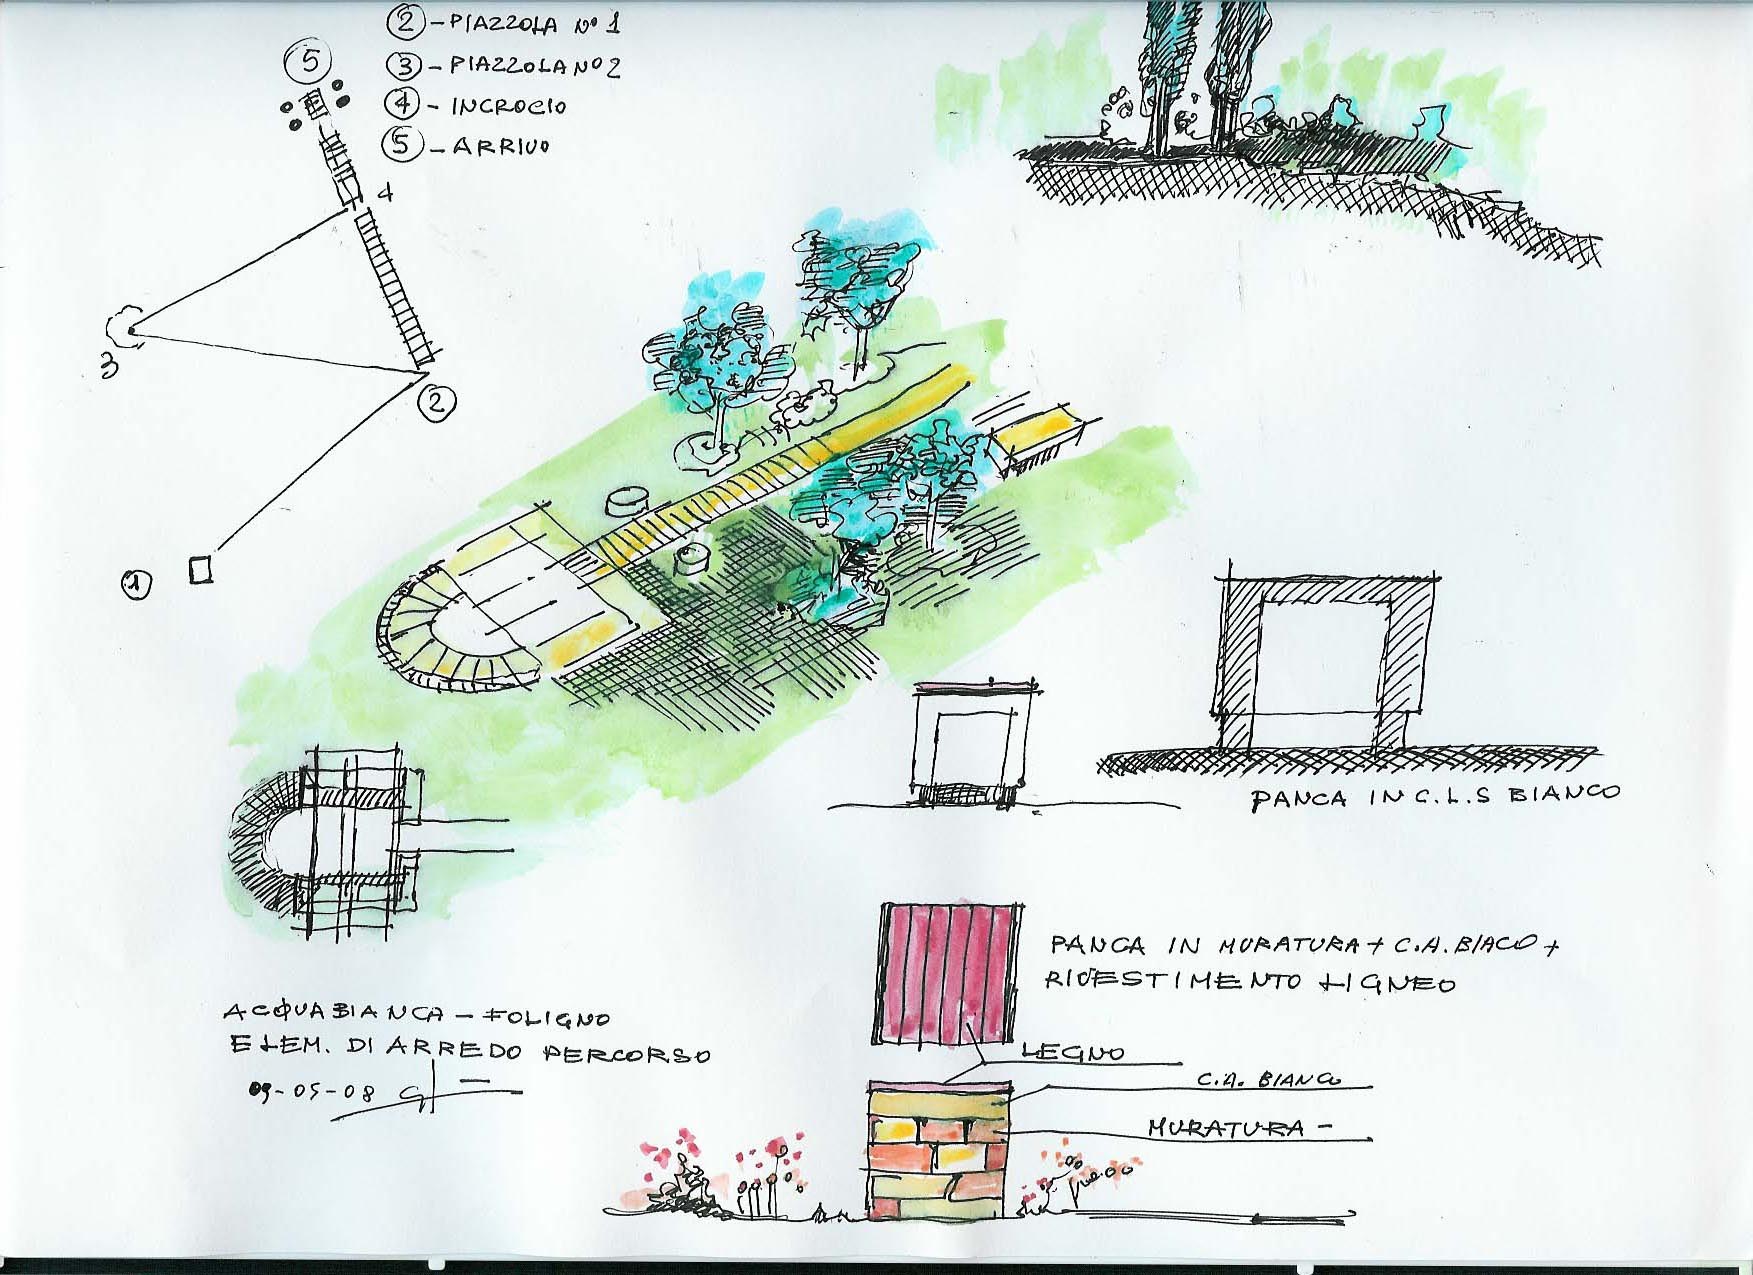 2 - PIAZZOLA N° 1
3 - PIAZZOLA N° 2
4 - INCROCIO
5 - ARRIVO
5
4
3
2
1
PANCA IN C.L.S BIANCO
PANCA IN MURATURA + C.A. BIACO +
RIVESTIMENTO LIGNEO
LEGNO
C.A. BIANCO
MURATURA -
ACQUABIANCA - FOLIGNO
ELEM. DI ARREDO PERCORSO
09-05-08